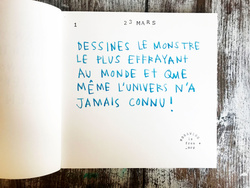 1
23 MARS
DESSINES LE MONSTRE
LE PLUS EFFRAYANT
AU MONDE ET QUE
MÊME L'UNIVERS N'A
JAMAIS CONNU !